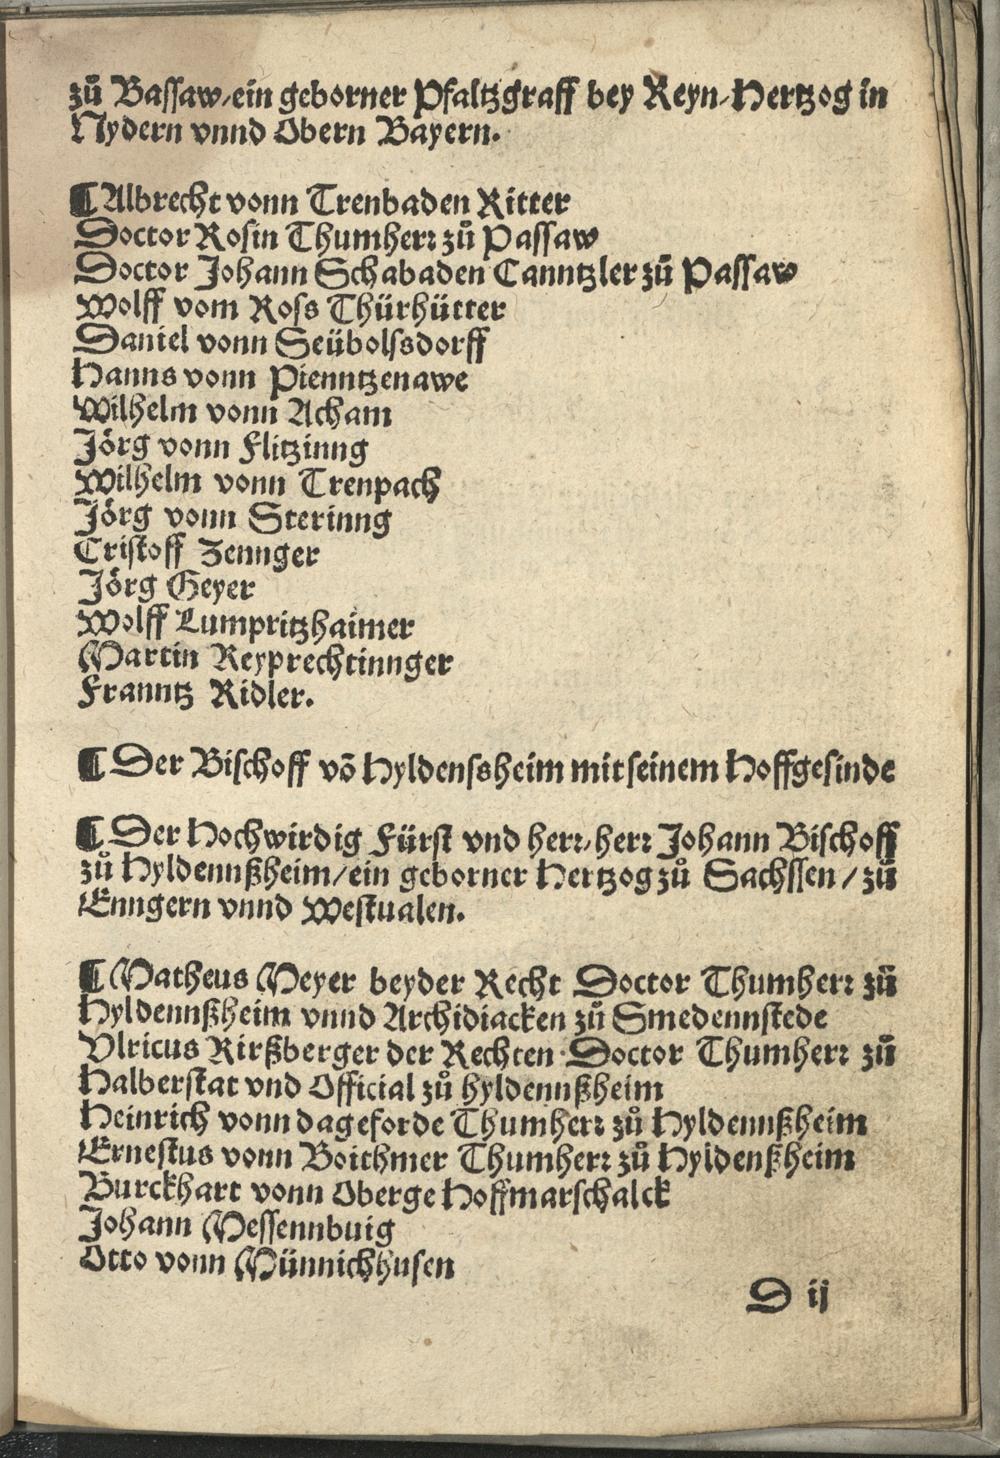 zů Bassaw/ein geborner Pfaltzgraff bey Reyn/Hertzog in
Nydern vnnd Obern Bayern.
¶Albrecht vonn Trenbaden Ritter
Doctor Rosin Thumherr zů Passaw
Doctor Johann Schabaden Canntzler zů Passaw
Wolff vom Ross Thürhütter
Daniel vonn Seübolssdorff
Hanns vonn Pienntzenawe
Wilhelm vonn Acham
Jörg vonn Flitzinng
Wilhelm vonn Trenpach
Jörg vonn Sterinng
Cristoff Zennger
Jörg Geyer
Wolff Lumpritzhaimer
Martin Reyprechtinnger
Franntz Ridler.
¶Der Bischoff võ Hyldenssheim mit seinem Hoffgesinde
¶Der Hochwirdig Fürst vnd herr/herr Johann Bischoff
zů Hyldennßheim/ein geborner Hertzog zů Sachssen/zů
Enngern vnnd Westualen.
¶Matheus Meyer beyder Recht Doctor Thumherr zů
Hyldennßheim vnnd Archidiacken zů Smedennstede
Vlricus Kirßberger der Rechten Doctor Thumherr zů
Halberstat vnd Official zů hyldennßheim
Heinrich vonn dageforde Thumherr zů Hyldennßheim
Ernestus vonn Boithmer Thumherr zů Hyldenßheim
Burckhart vonn Oberge Hoffmarschalck
Johann Messennbuig
Otto vonn Münnichhusen
D ij